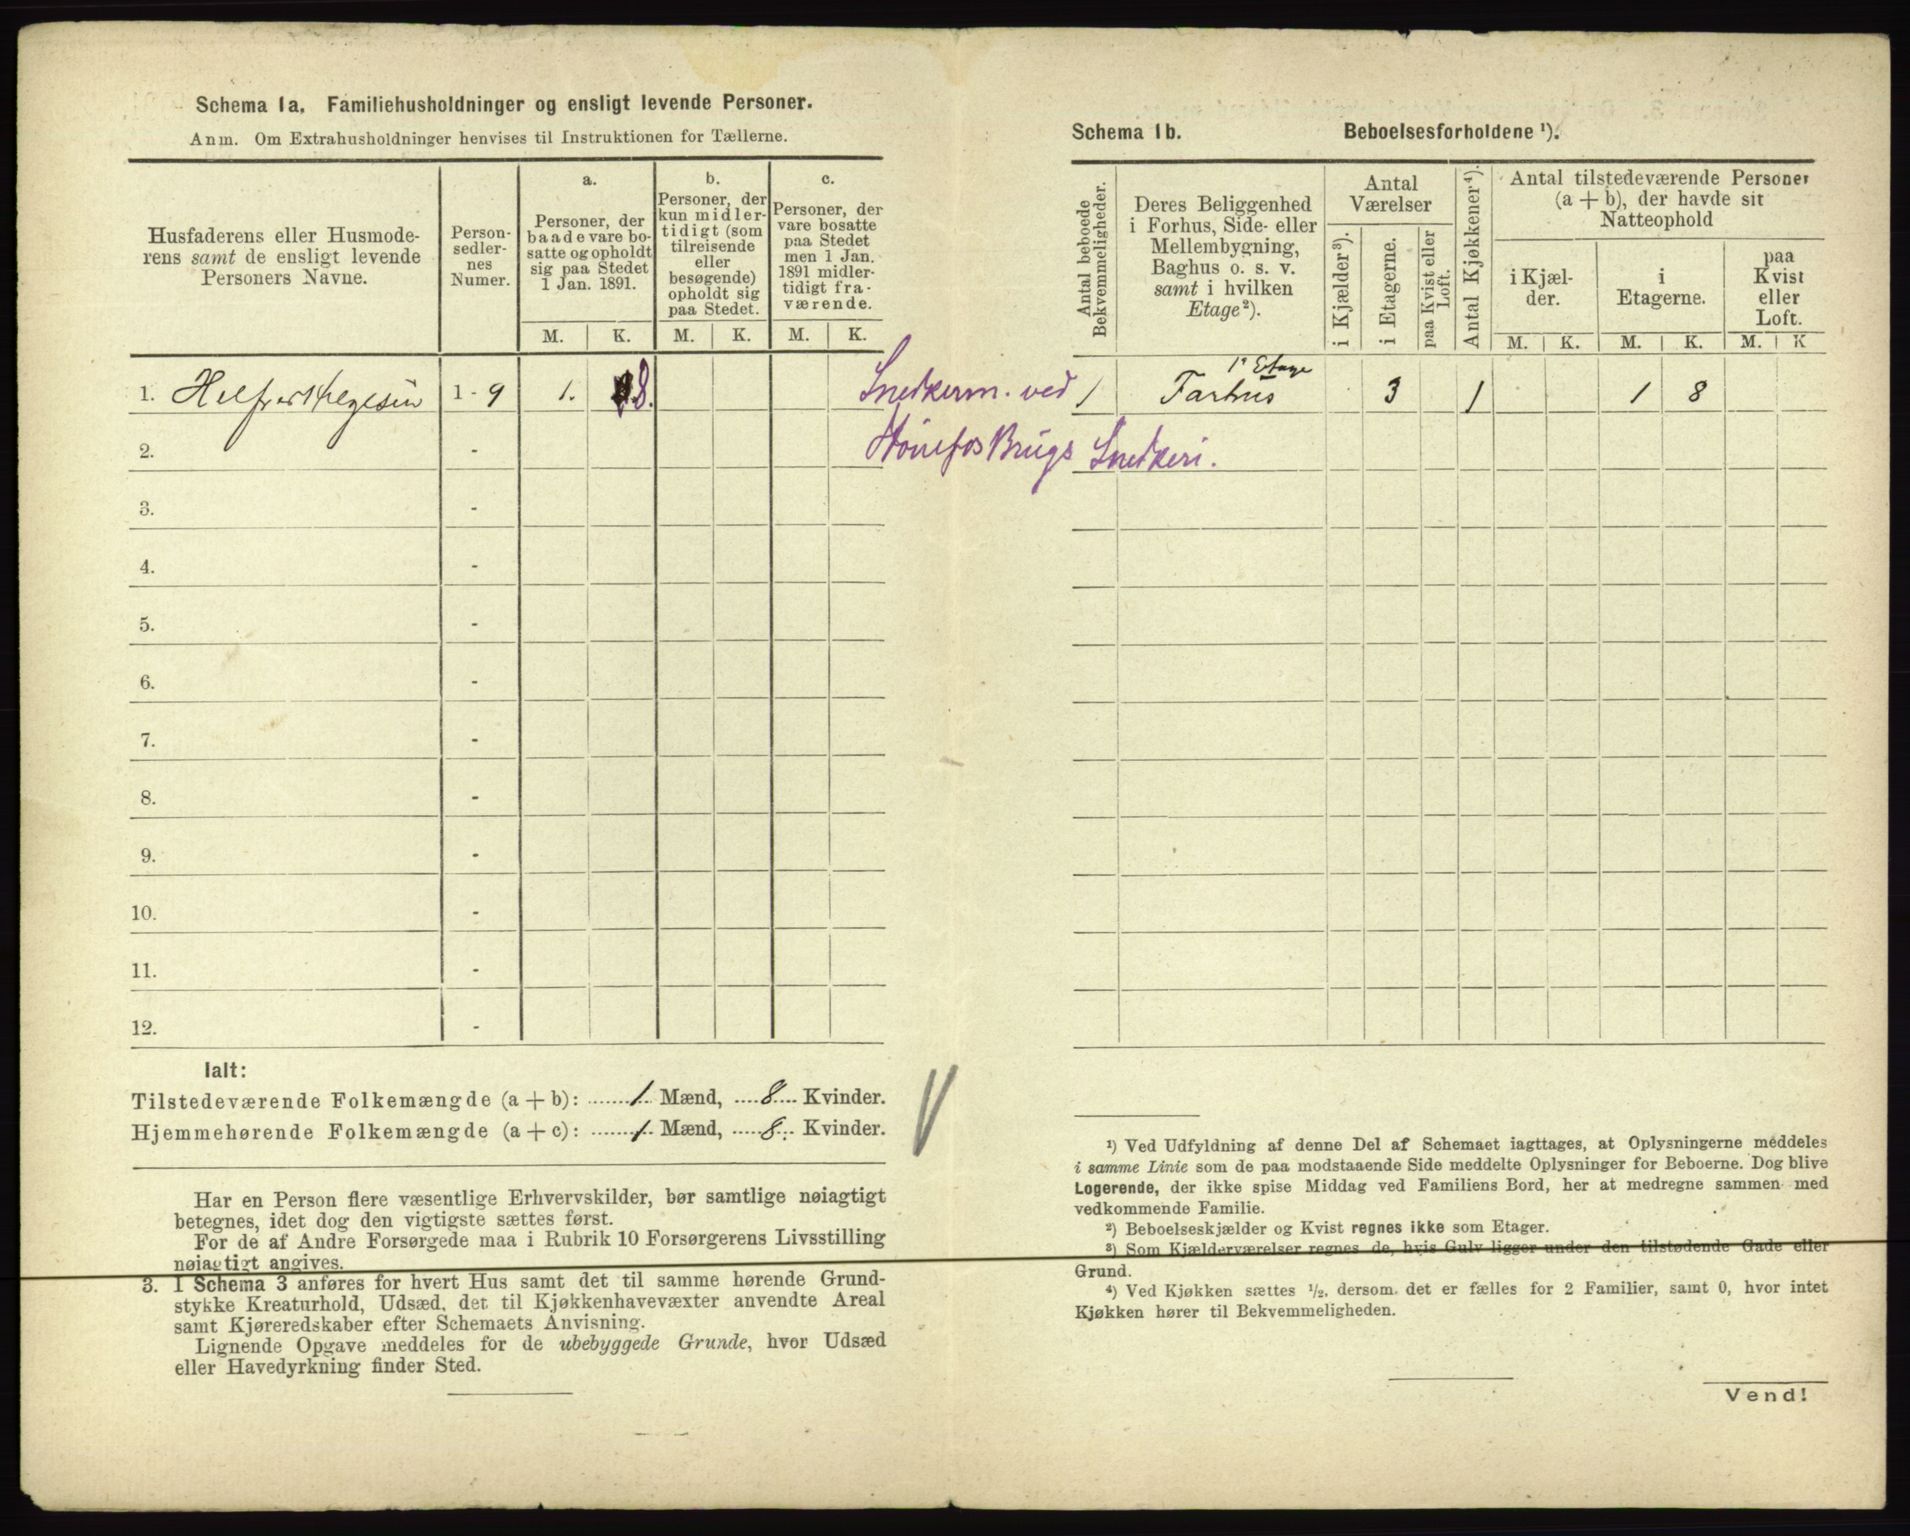 Schema 1a. Familiehusholdninger og ensligt levende Personer.
Anm. Om Extrahusholdninger henvises til Instruktionen for Tællerne.
Husfaderens eller Husmode-
rens samt de ensligt levende
Personers Navne.
Person-
sedler-
nes
Numer.
a.
Personer, der
baade vare bo-
satte og opholdt
sig paa Stedet
1 Jan. 1891.
b.
Personer, der
kun midler-
tidigt (som
tilreisende
eller
besøgende)
opholdt sig
paa Stedet.
c.
Personer, der
vare bosatte
paa Stedet
men 1 Jan.
1891 midler-
tidigt fra-
værende.
M. K. M. K. M. K.
1. 1 - 9 1. 8. Snetkerm. ved
2. - Hønefos Brugs Snetkeri.
3. -
4. -
5. -
6. -
7. -
8. -
9. -
10. -
11. -
12. -
Ialt:
Tilstedeværende Folkemængde (a + b): 1 Mænd, 8 Kvinder.
Hjemmehørende Folkemængde (a + c): 1 Mænd, 8. Kvinder.
Har en Person flere væsentlige Erhvervskilder, bør samtlige nøiagtigt
betegnes, idet dog den vigtigste sættes først.
For de af Andre Forsørgede maa i Rubrik 10 Forsørgerens Livsstilling
nøiagtigt angives.
3. I Schema 3 anføres for hvert Hus samt det til samme hørende Grund-
stykke Kreaturhold, Udsæd, det til Kjøkkenhavevæxter anvendte Areal
samt Kjøreredskaber efter Schemaets Anvisning.
Lignende Opgave meddeles for de ubebyggede Grunde, hvor Udsæd
eller Havedyrkning finder Sted.
Schema 1b. Beboelsesforholdene ¹).
Antal beboede
Bekvemmeligheder.
Deres Beliggenhed
i Forhus, Side- eller
Mellembygning,
Baghus o. s. v.
samt i hvilken
Etage²).
Antal
Værelser
i Kjælder³).
i Etagerne.
paa Kvist eller
Loft.
Antal Kjøkkener⁴).
Antal tilstedeværende Personer
(a + b), der havde sit
Natteophold
i Kjæl-
der.
i
Etagerne.
paa
Kvist
eller
Loft.
M. K. M. K. M. K
1ᵉ Etage
1 Forhus 3 1 1 8
¹) Ved Udfyldning af denne Del af Schemaet iagttages, at Oplysningerne meddeles
i samme Linie som de paa modstaaende Side meddelte Oplysninger for Beboerne. Dog blive
Logerende, der ikke spise Middag ved Familiens Bord, her at medregne sammen med
vedkommende Familie.
²) Beboelseskjælder og Kvist regnes ikke som Etager.
³) Som Kjælderværelser regnes de, hvis Gulv ligger under den tilstødende Gade eller
Grund.
⁴) Ved Kjøkken sættes ½, dersom det er fælles for 2 Familier, samt 0, hvor intet
Kjøkken hører til Bekvemmeligheden.
Vend!